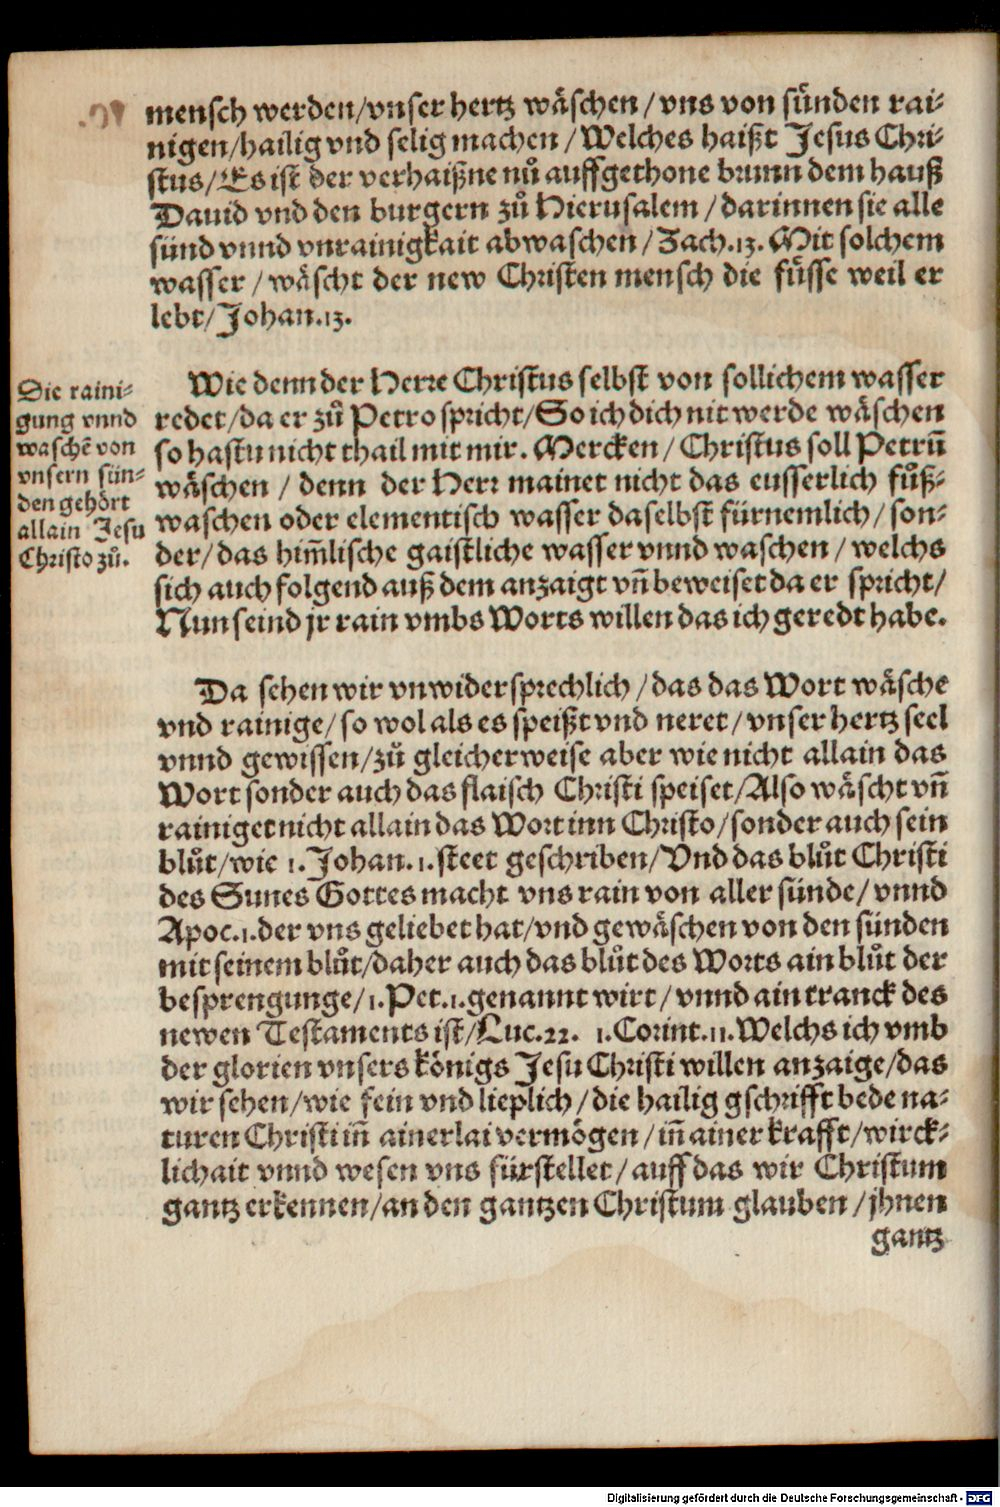 mensch werden/vnser hertz wäschen/vns von sünden rai-
nigen/hailig vnd selig machen/Welches haißt Jesus Chri-
stus/Es ist der verhaißne nů auffgethone brunn dem hauß
Dauid vnd den burgern zů Hierusalem/darinnen sie alle
sünd vnnd vnrainigkait abwaschen/Zach.13. Mit solchem
wasser/wäscht der new Christen mensch die füsse weil er
lebt/Johan.13.
Die raini-
gung vnnd
waschẽ von
vnsern sün-
den gehört
allain Jesu
Christo zů.
Wie denn der Herre Christus selbst von sollichem wasser
redet/da er zů Petro spricht/So ich dich nit werde wäschen
so hastu nicht thail mit mir. Mercken/Christus soll Petrũ
wäschen/denn der Herr mainet nicht das eusserlich fůß-
waschen oder elementisch wasser daselbst fürnemlich/son-
der/das him̃lische gaistliche wasser vnnd waschen/welchs
sich auch folgend auß dem anzaigt vñ beweiset da er spricht/
Nun seind jr rain vmbs Worts willen das ich geredt habe.
Da sehen wir vnwidersprechlich/das das Wort wäsche
vnd rainige/so wol als es speißt vnd neret/vnser hertz seel
vnnd gewissen/zů gleicherweise aber wie nicht allain das
Wort sonder auch das flaisch Christi speiset/Also wäscht vñ
rainiget nicht allain das Wort inn Christo/sonder auch sein
blůt/wie 1. Johan.1. steet geschriben/Vnd das blůt Christi
des Sunes Gottes macht vns rain von aller sünde/vnnd
Apoc.1. der vns geliebet hat/vnd gewäschen von den sünden
mit seinem blůt/daher auch das blůt des Worts ain blůt der
besprengunge/1.Pet.1. genannt wirt/vnnd ain tranck des
newen Testaments ist/Luc.22. 1.Corint.11. Welchs ich vmb
der glorien vnsers königs Jesu Christi willen anzaige/das
wir sehen/wie fein vnd lieplich/die hailig gschrifft bede na-
turen Christi iñ ainerlai vermögen/iñ ainer krafft/wirck-
lichait vnnd wesen vns fürstellet/auff das wir Christum
gantz erkennen/an den gantzen Christum glauben/jhnen
gantz
Digitalisierung gefördert durch die Deutsche Forschungsgemeinschaft - DFG